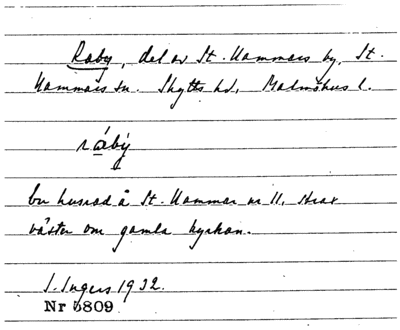 Råby, del av St. Hammars by, St.
Hammars sn. Skytts hd, Malmöhus l.
råby
en husrad å St. Hammar nr 11, strax
väster om gamla kyrkan.
I. Ingers 1932.
Nr 5809